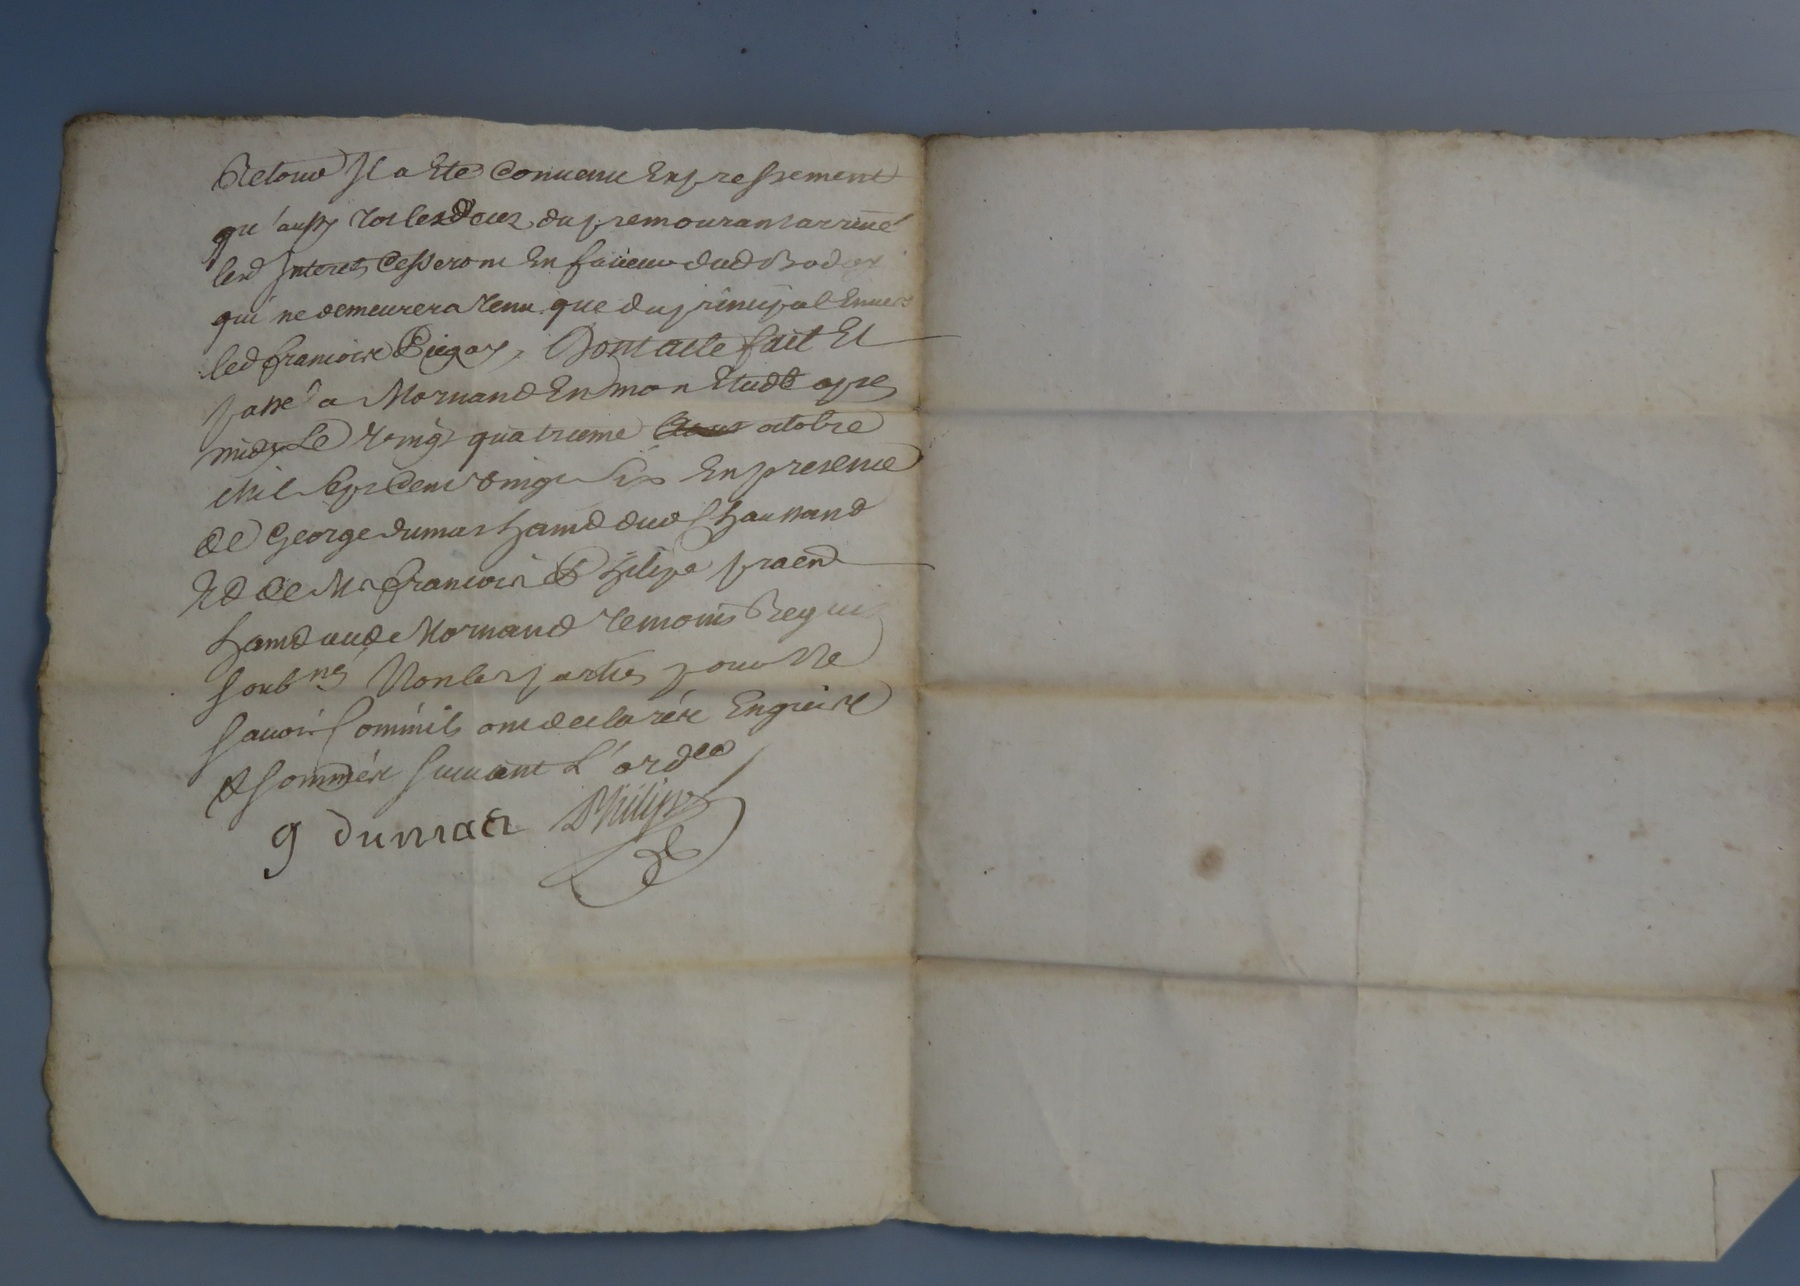 Retour Il a ete Convenu Expressement
qu'aussy tot le deces du premourant arrivé
lesd Interets Cesseront En faveur dud Boday
qui ne demeurera tenu que du principal Envers
led francoise Piegay, Dont acte fait Et
passé a Mornand En mon Etude apres
midy Le vingt quatrieme octobre
Mil Sept Cent vingt Six En presence
de George dumas hamt dud Chaunand
Et de Mr francois Philipe praen
hamt aud Mornand temoins Requis
soubnes Non les parties pour Ne
savoir Comm'ils ont declaréés Enquise
& sommées suivant L'ordce
g dumas Philipe